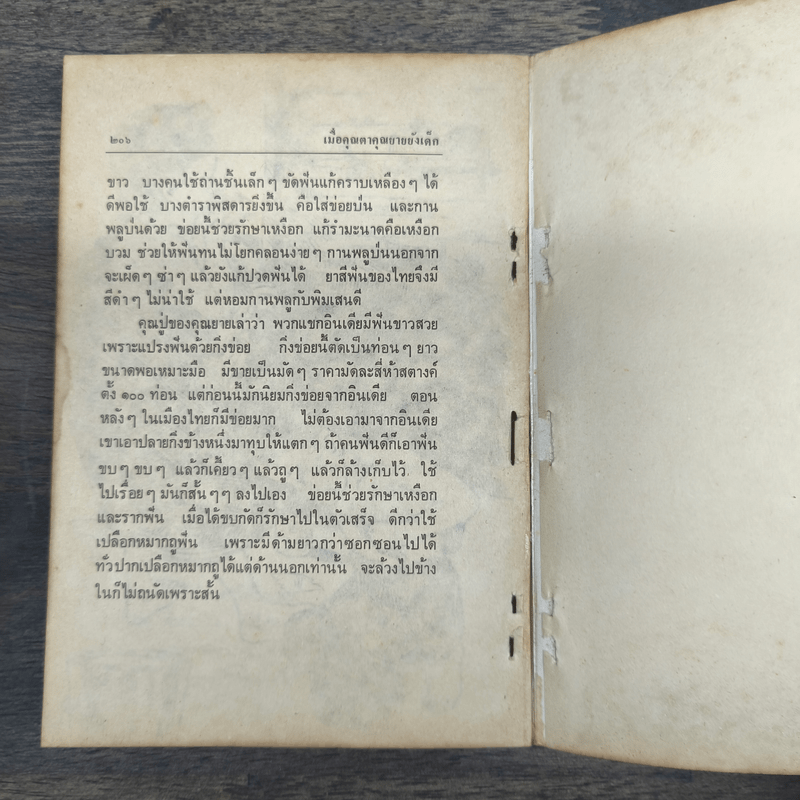 ๒๐๖ เมื่อคุณตาคุณยายยังเด็ก
ขาว บางคนใช้ถ่านชิ้นเล็กๆ ขัดฟันแก้คราบเหลืองๆ ได้
ดีพอใช้ บางตำราพิสดารยิ่งขึ้น คือใส่ข่อยป่น และกาน
พลูป่นด้วย ข่อยนี้ช่วยรักษาเหงือก แก้รำมะนาดคือเหงือก
บวม ช่วยให้ฟันทนไม่โยกคลอนง่ายๆ กานพลูป่นนอกจาก
จะเผ็ดๆ ซ่าๆ แล้วยังแก้ปวดฟันได้ ยาสีฟันของไทยจึงมี
สีดำๆ ไม่น่าใช้ แต่หอมกานพลูกับพิมเสนดี
คุณปู่ของคุณยายเล่าว่า พวกแขกอินเดียมีฟันขาวสวย
เพราะแปรงฟันด้วยกิ่งข่อย กิ่งข่อยนี้ตัดเป็นท่อนๆ ยาว
ขนาดพอเหมาะมือ มีขายเป็นมัดๆ ราคามัดละสี่ห้าสตางค์
ตั้ง ๑๐๐ ท่อน แต่ก่อนนี้มักนิยมกิ่งข่อยจากอินเดีย ตอน
หลังๆ ในเมืองไทยก็มีข่อยมาก ไม่ต้องเอามาจากอินเดีย
เขาเอาปลายกิ่งข้างหนึ่งมาทุบให้แตกๆ ถ้าคนฟันดีก็เอาฟัน
ขบๆ ขบๆ แล้วก็เคี้ยวๆ แล้วถูๆ แล้วก็ล้างเก็บไว้ ใช้
ไปเรื่อยๆ มันก็สั้นๆๆ ลงไปเอง ข่อยนี้ช่วยรักษาเหงือก
และรากฟัน เมื่อได้ขบกัดก็รักษาไปในตัวเสร็จ ดีกว่าใช้
เปลือกหมากถูฟัน เพราะมีด้ามยาวกว่าซอกซอนไปได้
ทั่วปากเปลือกหมากถูได้แต่ด้านนอกเท่านั้น จะล้วงไปข้าง
ในก็ไม่ถนัดเพราะสั้น